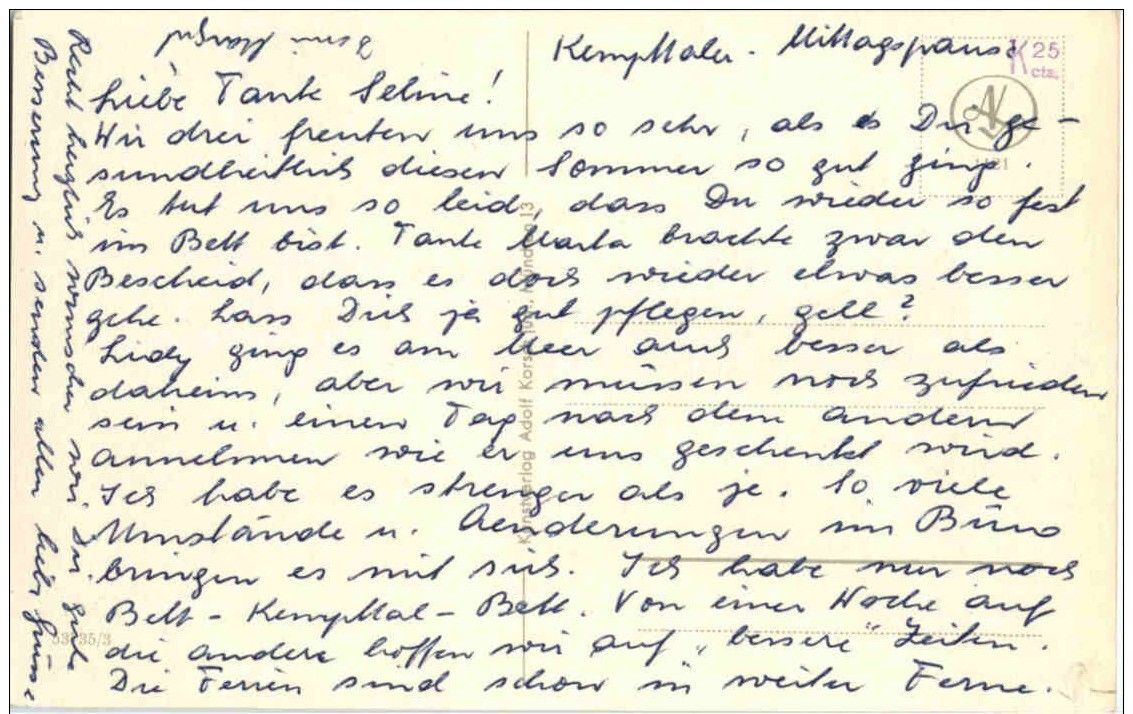 Kempttaler - Mittagspause
Liebe Tante Seline!
Wir drei freuten uns so sehr, als es Dir ge-
sundheitlich diesen Sommer so gut ging.
Es tut uns so leid, dass Du wieder so fest
im Bett bist. Tante Marta brachte zwar den
Bescheid, dass es doch wieder etwas besser
gehe. Lass Dich ja gut pflegen, gell?
Lidy ging es am Meer auch besser als
daheim, aber wir müssen noch zufrieden
sein u. einen Tag nach dem andern
annehmen wie er uns geschenkt wird.
Ich habe es strenger als je. So viele
Umstände u. Aenderungen im Büro
bringen es mit sich. Ich habe nur noch
Bett - Kempttal - Bett. Von einer Woche auf
die andere hoffen wir auf "bessere" Zeiten.
Die Ferien sind schon in weiter Ferne.
Recht herzlich wünschen wir Dir gute
Besserung u. senden allen liebe Grüsse
K 25
cts.
AK
Kunstverlag Adolf Korsch
13
53 35/3